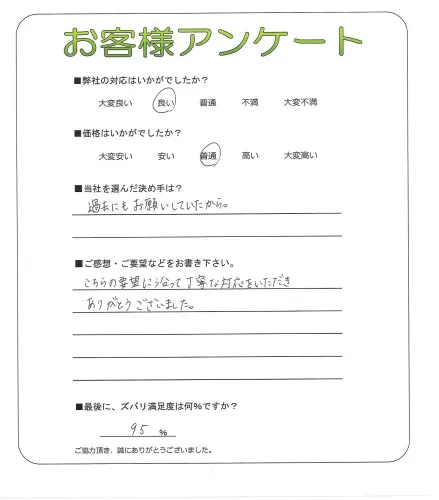 お客様アンケート
■弊社の対応はいかがでしたか？
大変良い 良い 普通 不満 大変不満
■価格はいかがでしたか？
大変安い 安い 普通 高い 大変高い
■当社を選んだ決め手は？
過去にもお願いしていたから。
■ご感想・ご要望などをお書き下さい。
こちらの要望に沿って丁寧な対応をいただき
ありがとうございました。
■最後に、ズバリ満足度は何％ですか？
95 ％
ご協力頂き、誠にありがとうございました。